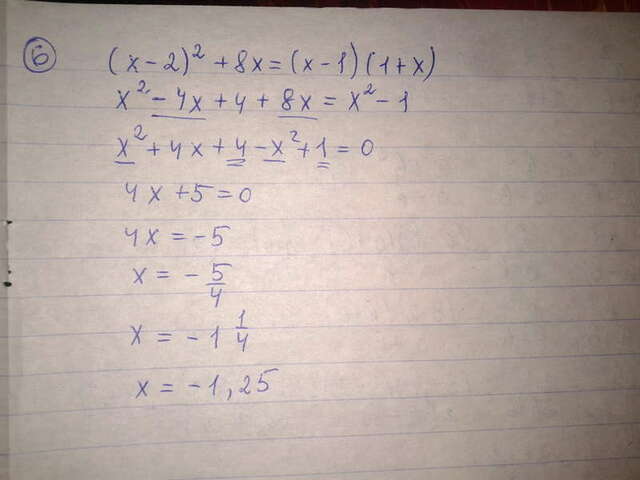 6 (x-2)² + 8x = (x-1)(1+x)
x² - 4x + 4 + 8x = x² - 1
x² + 4x + 4 - x² + 1 = 0
4x + 5 = 0
4x = -5
x = - 5/4
x = -1 1/4
x = -1,25